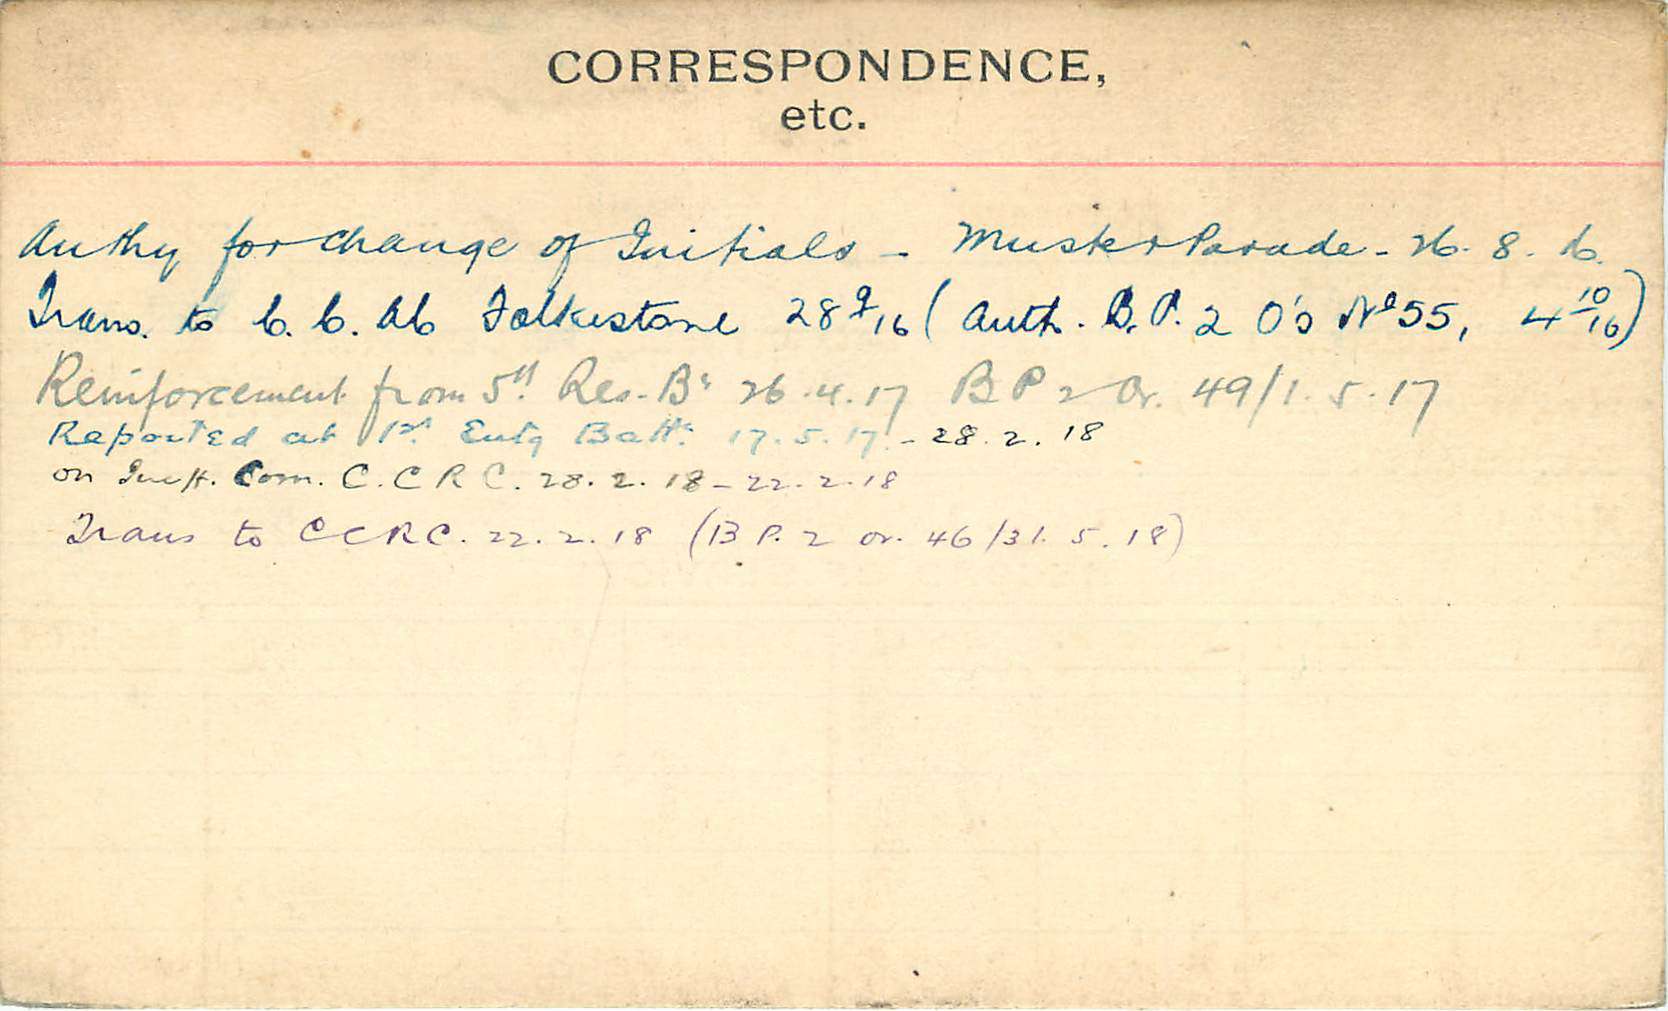 CORRESPONDENCE,
etc.
Authy for change of Initials - Muster Parade - 26. 8. 16.
Trans. to C. C. Ab Folkestone 28 9/16 (Auth. B. P. 2 O's No 55, 4 10/16)
Reinforcement from 5th Res. Bn 26.4.17 BP 2 Or. 49/1.5.17
Reported at 1st Entg Battn 17.5.17 - 28.2.18
on Com. C.C.R.C. 28.2.18 - 22.2.18
Trans to CCRC. 22.2.18 (B P. 2 Or. 46/31.5.18)